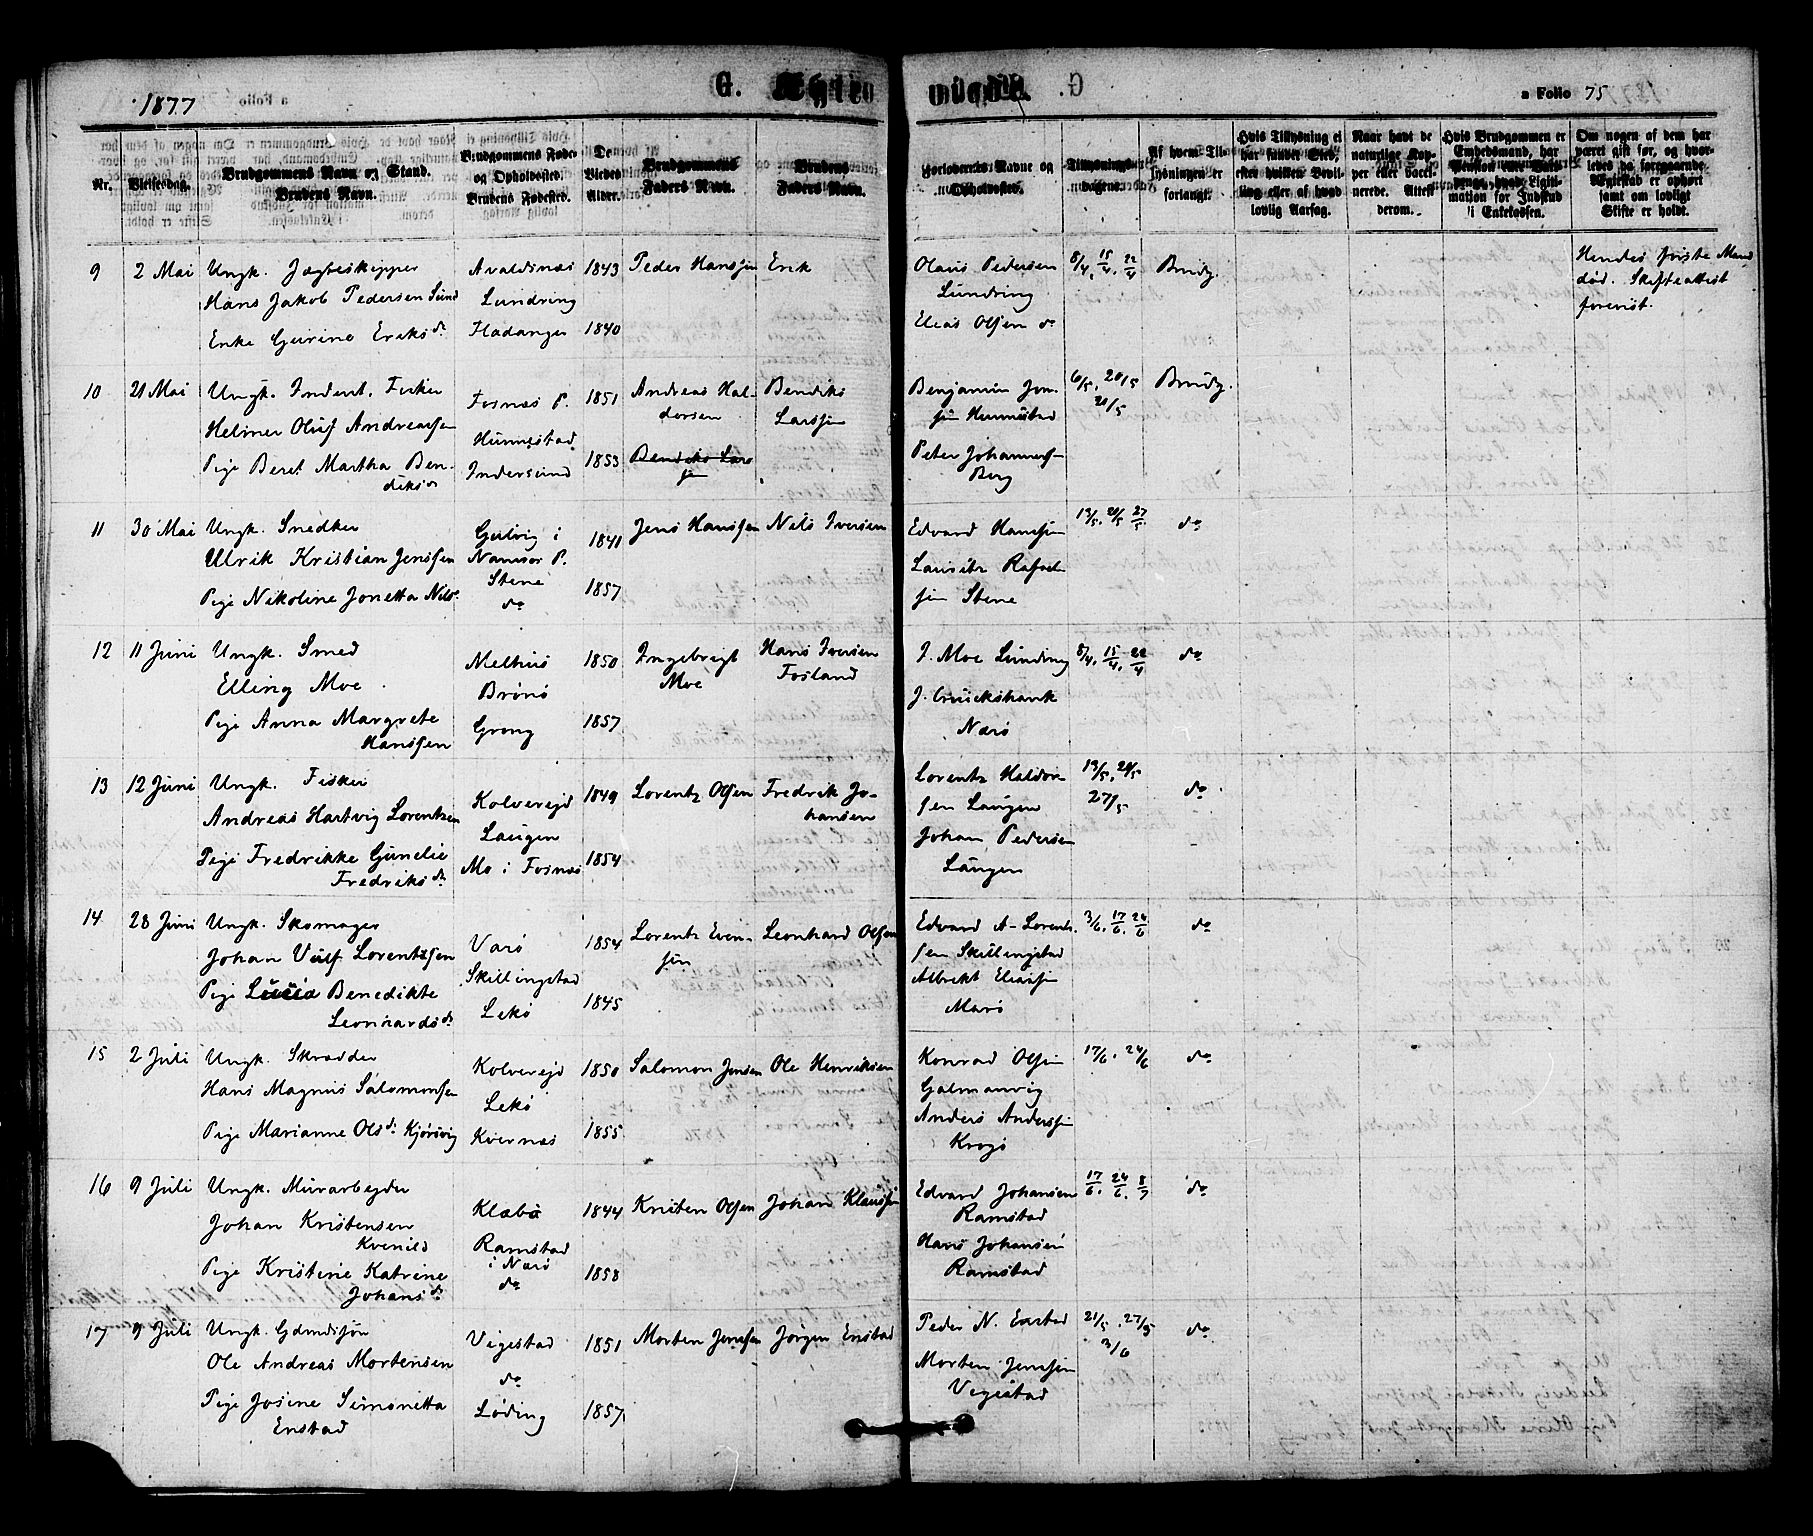 1877
G. Ægteviede.
a Folio 75
Nr.
Vielsesdag.
Brudgommens Navn og Stand.
Brudens Navn.
Brudgommens Føde-
og Opholdssted.
Brudens Fødested.
De
Viedes
Alder.
Brudgommens
Faders Navn.
Brudens
Faders Navn.
Forlovernes Navne og
Opholdssted.
Tillysnings-
dagene.
Af hvem Til-
lysningen er
forlangt.
Hvis Tillysning ei
har fundet Sted,
efter hvilken Bevil-
ling eller af hvad
lovlig Aarsag.
Naar havt de
naturlige Kop-
per eller vacci-
nerede. Attest
derom.
Hvis Brudgommen er
Embedsmand, har
mation for Indskud
i Enkekassen.
Om nogen af dem har
været gift før, og hvor-
ledes da foregaaende
Ægteskab er ophørt
samt om lovligt
Skifte er holdt.
9 2 Mai Ungk. Jægteskipper Avaldsnæs 1843 Peder Hanssen Erik Olaus Pedersen 8/4. 15/4. 22/4 Brudg. Hendes første Mand
Hans Jakob Pedersen Sund Lundring Lundring død. Skifteattest
Enke Gurine Eriksd. Fladanger 1840 Elias Olsen do forevist.
10 21 Mai Ungk. Inderst. Fisker Fosnæs P. 1851 Andreas Hal- Bendiks Benjamin Jon- 6/5. 20/5 Brudg.
Helmer Oluf Andreassen Hunnestad dorsen Larssen sen Hunnestad 21/5
Pige Beret Martha Ben- Indersund 1853 Bendiks Lars Peter Johannes
diksd. sen Berg
11 30 Mai Ungk. Snedker Gulvig i 1841 Jens Hanssen Nils Iversen Edvard Hanssen 13/5. 20/5 27/5. do
Ulrik Kristian Jenssen Namsos P. Lausitz Rafael-
Pige Nikoline Jonetta Nilsd. Stene 1857 sen Stene
do
12 11 Juni Ungk. Smed Melhus 1850 Ingebrigt Hans Iversen J. Moe Lundring 8/4. 15/4. 22/4 do
Elling Moe Brønø Moe Fosland J. Cruickshank
Pige Anna Margrete Grong 1857 Nærø
Hanssen
13 12 Juni Ungk. Fisker Kolvereid 1849 Lorentz Olsen Fredrik Jo- Lorentz Haldor- 13/5. 20/5 do
Andreas Hartvig Lorentzen Laugen hansen sen Laugen 27/5
Pige Fredrikke Gunelie Mo i Fosnæs 1854 Johan Pedersen
Fredriksd. Laugen
14 28 Juni Ungk. Skomager Nærø 1854 Lorents Even- Leonhard Olsen Edvard A- Lorents. 3/6. 17/6. 24/6 do
Johan Ulif Lorentssen Skillingstad sen sen Skillingstad
Pige Lucia Benedikte Lekø 1845 Albrekt Eliassen
Leonhardsd. Marø
15 2 Juli Ungk. Skrædder Kolvereid 1850 Salomon Jensen Ole Henriksen Konrad Olsen 17/6. 24/6 do
Hans Magnus Salomonsen Lekø Galmanvig
Pige Marianne Olsd. Kjørsvig Kvernæs 1855 Anders Anderssen
Krogø
16 9 Juli Ungk. Murarbeyder Klæbø 1844 Kristen Olsen Johan Klaussen Edvard Johansen 17/6. 24/6. 8/7 do
Johan Kristensen Ramstad Ramstad
Kvenild i Nærø Hans Johansen
Pige Kristine Katrine do 1858 Ramstad
Johansd.
17 9 Juli Ungk. Gaardssøn Vegestad 1851 Morten Jenssen Jørgen Enstad Peder N. Enstad 21/5. 27/5 do
Ole Andreas Mortensen do Morten Jenssen 3/6
Pige Josine Simonetta Løding 1857 Vegestad
Enstad